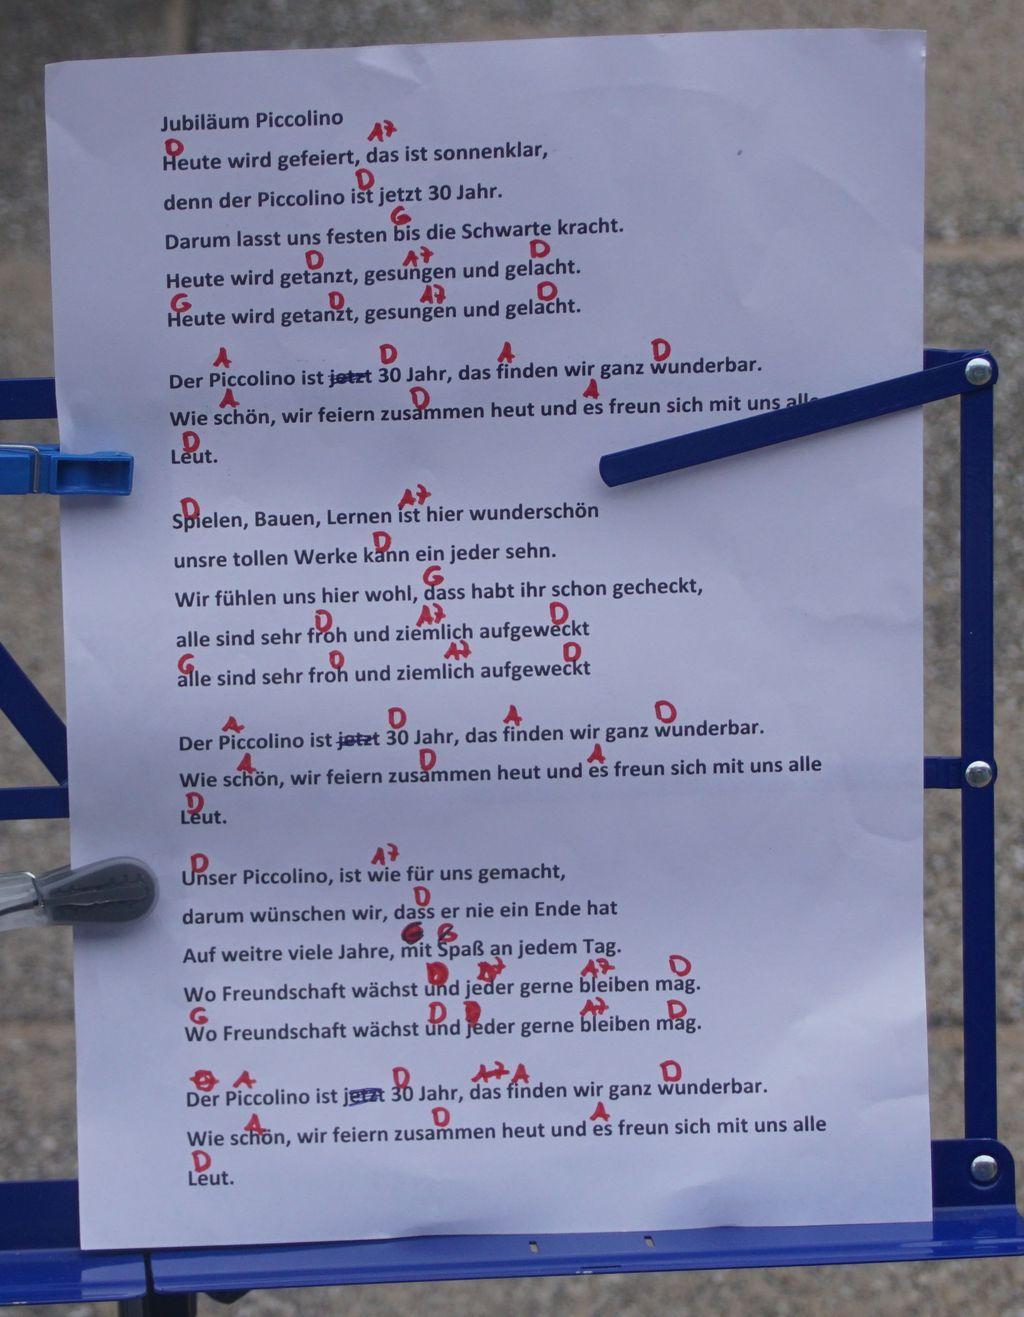 Jubiläum Piccolino
D A7
Heute wird gefeiert, das ist sonnenklar,
D
denn der Piccolino ist jetzt 30 Jahr.
G
Darum lasst uns festen bis die Schwarte kracht.
D A7 D
Heute wird getanzt, gesungen und gelacht.
G D A7 D
Heute wird getanzt, gesungen und gelacht.
A D A D
Der Piccolino ist jetzt 30 Jahr, das finden wir ganz wunderbar.
A D A
Wie schön, wir feiern zusammen heut und es freun sich mit uns alle
D
Leut.
D A7
Spielen, Bauen, Lernen ist hier wunderschön
D
unsre tollen Werke kann ein jeder sehn.
G
Wir fühlen uns hier wohl, dass habt ihr schon gecheckt,
D A7 D
alle sind sehr froh und ziemlich aufgeweckt
G D A7 D
alle sind sehr froh und ziemlich aufgeweckt
A D A D
Der Piccolino ist jetzt 30 Jahr, das finden wir ganz wunderbar.
A D A
Wie schön, wir feiern zusammen heut und es freun sich mit uns alle
D
Leut.
D A7
Unser Piccolino, ist wie für uns gemacht,
D
darum wünschen wir, dass er nie ein Ende hat
G
Auf weitre viele Jahre, mit Spaß an jedem Tag.
D A7 A7 D
Wo Freundschaft wächst und jeder gerne bleiben mag.
G D A7 D
Wo Freundschaft wächst und jeder gerne bleiben mag.
A D A7 A D
Der Piccolino ist jetzt 30 Jahr, das finden wir ganz wunderbar.
A D A
Wie schön, wir feiern zusammen heut und es freun sich mit uns alle
D
Leut.